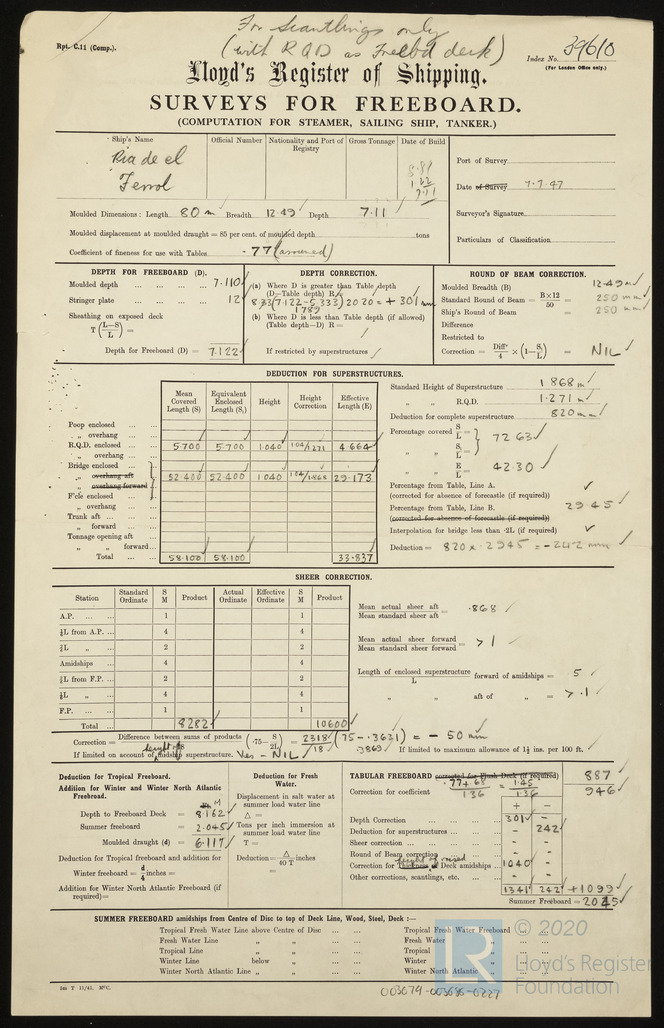 For Scantlings only
(with RQD as Freebd deck)
Rpt. C.11 (Comp.).
Index No. 39610
(For London Office only.)
Lloyd's Register of Shipping.
SURVEYS FOR FREEBOARD.
(COMPUTATION FOR STEAMER, SAILING SHIP, TANKER.)
Ship's Name Official Number Nationality and Port of Registry Gross Tonnage Date of Build
Ria de el
Ferrol
8.81
1.22
7.11
Port of Survey
Date of Survey 7.7.47
Surveyor's Signature
Particulars of Classification
Moulded Dimensions: Length 80 m Breadth 12.49 Depth 7.11
Moulded displacement at moulded draught = 85 per cent. of moulded depth tons
Coefficient of fineness for use with Tables .77 (assumed)
DEPTH FOR FREEBOARD (D).
Moulded depth 7.110
Stringer plate 12
Sheathing on exposed deck
T (L—S/L) =
Depth for Freeboard (D) = 7.122
DEPTH CORRECTION.
(a) Where D is greater than Table depth
(D—Table depth) R
8.33(7.122-5.333)2020 = + 301 mm
1789
(b) Where D is less than Table depth (if allowed)
(Table depth—D) R =
If restricted by superstructures
ROUND OF BEAM CORRECTION.
Moulded Breadth (B) 12.49 m
Standard Round of Beam = B×12/50 = 250 mm
Ship's Round of Beam = 250 mm
Difference
Restricted to
Correction = Diffce/4 × (1—S₁/L) = NIL
DEDUCTION FOR SUPERSTRUCTURES.
Mean Covered Length (S) Equivalent Enclosed Length (S₁) Height Height Correction Effective Length (E)
Poop enclosed
„ overhang
R.Q.D. enclosed 5.700 5.700 1.040 1.04/1.271 4.664
„ overhang
Bridge enclosed
„ overhang aft 52.400 52.400 1.040 1.04/1.868 29.173
„ overhang forward
F'cle enclosed
„ overhang
Trunk aft
„ forward
Tonnage opening aft
„ „ forward
Total 58.100 58.100 33.837
Standard Height of Superstructure 1.868 m
„ „ R.Q.D. 1.271 m
Deduction for complete superstructure 820 mm
Percentage covered S/L =
„ „ S₁/L = 72.63
„ „ E/L = 42.30
Percentage from Table, Line A.
(corrected for absence of forecastle (if required))
Percentage from Table, Line B. 29.45
(corrected for absence of forecastle (if required))
Interpolation for bridge less than ·2L (if required)
Deduction = 820 x .2945 = -242 mm
SHEER CORRECTION.
Station Standard Ordinate S M Product Actual Ordinate Effective Ordinate S M Product
A.P. 1 1
⅙L from A.P. 4 4
⅓L „ 2 2
Amidships 4 4
⅓L from F.P. 2 2
⅙L „ 4 4
F.P. 1 1
Total 8282 10600
Mean actual sheer aft / Mean standard sheer aft = .868
Mean actual sheer forward / Mean standard sheer forward = > 1
Length of enclosed superstructure / L forward of amidships = .5
„ „ aft of „ = > .1
Correction = Difference between sums of products/18 (·75— S/2L) = 2318/18 (.75-.3631) = - 50 mm
.3869
If limited on account of midship superstructure. height of Yes - NIL
If limited to maximum allowance of 1½ ins. per 100 ft.
Deduction for Tropical Freeboard.
Addition for Winter and Winter North Atlantic Freeboard.
M
Depth to Freeboard Deck = 8.162
Summer freeboard = 2.045
Moulded draught (d) = 6.117
Deduction for Tropical freeboard and addition for
Winter freeboard = d/4 inches =
Addition for Winter North Atlantic Freeboard (if required)=
Deduction for Fresh Water.
Displacement in salt water at summer load water line
Δ =
Tons per inch immersion at summer load water line
T =
Deduction= Δ/40 T inches
=
TABULAR FREEBOARD corrected for Flush Deck (if required) 887
Correction for coefficient .77+.68/1.36 = 1.45/1.36 946
+ —
Depth Correction 301 -
Deduction for superstructures - 242
Sheer correction - -
Round of Beam correction - -
Correction for Thickness of Deck amidships height of raised 1040 -
Other corrections, scantlings, etc.
1341 242 +1099
Summer Freeboard = 2045
SUMMER FREEBOARD amidships from Centre of Disc to top of Deck Line, Wood, Steel, Deck :—
Tropical Fresh Water Line above Centre of Disc Tropical Fresh Water Freeboard
Fresh Water Line „ „ Fresh Water „
Tropical Line „ „ Tropical „
Winter Line below „ Winter „
Winter North Atlantic Line „ „ Winter North Atlantic „
© 2020
LR
Lloyd's Register
Foundation
003079-003086-0227